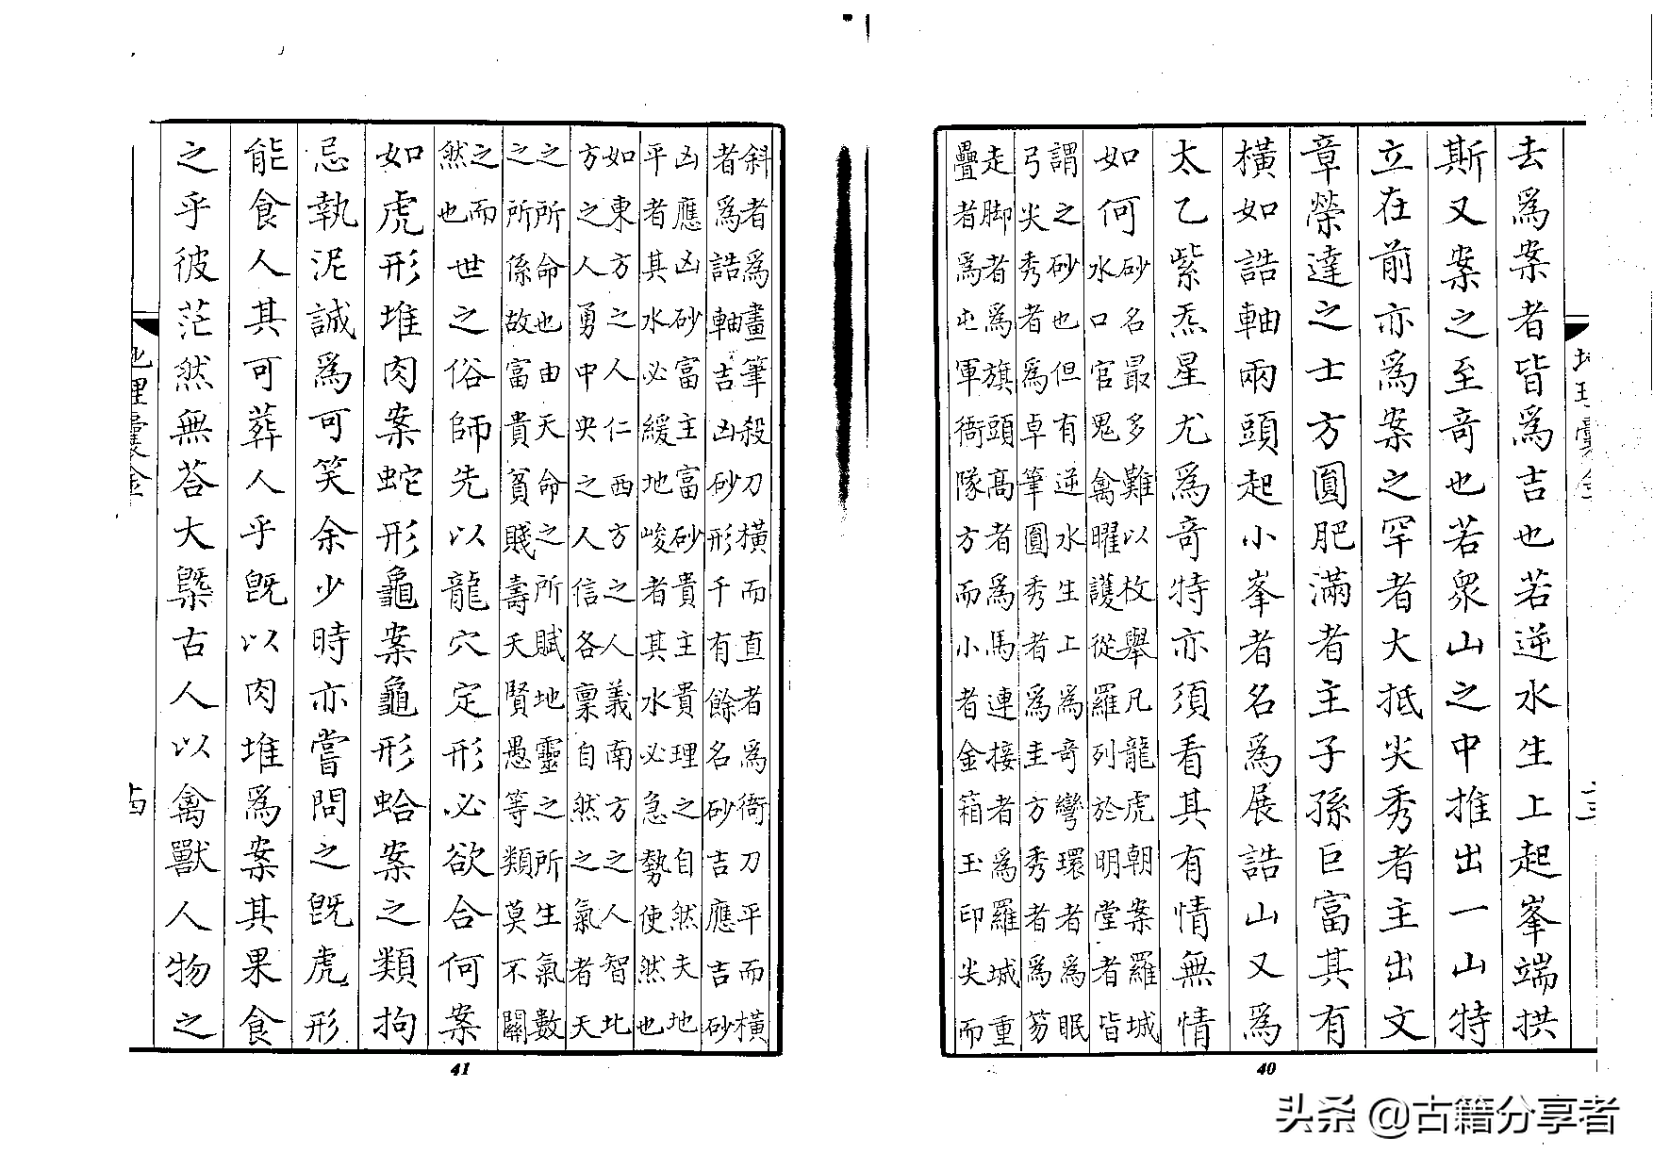 去爲案者皆爲吉也若逆水生上起峯端拱
斯又案之至竒也若衆山之中推出一山特
立在前亦爲案之罕者大抵尖秀者主出文
章榮達之士方圓肥滿者主子孫巨富其有
橫如誥軸兩頭起小峯者名爲展誥山又爲
太乙紫炁星尤爲竒特亦須看其有情無情
如何
砂名最多難以枚舉凡龍虎朝案羅城
水口官鬼禽曜護從羅列於明堂者皆
謂之砂也但有逆水生上爲竒彎環者爲眠
弓尖秀者爲卓筆圓秀者爲圭方秀者爲笏
走脚者爲旗頭高者爲馬連接者爲羅城重
疊者爲屯軍衙隊方而小者金箱玉印尖而
40
斜者爲畫筆殺刀橫而直者爲衙刀平而橫
者爲誥軸吉凶砂形千有餘名砂吉應吉砂
凶應凶砂富主富砂貴主貴理之自然夫地
平者其水必緩地峻者其水必急勢使然也
如東方之人仁西方之人義南方之人智北
方之人勇中央之人信各稟自然之氣者天
之所命也由天命之所賦地靈之所生氣數
之所係故富貴貧賤壽夭賢愚等類莫不關
之而
然也
世之俗師先以龍穴定形必欲合何案
如虎形堆肉案蛇形龜案龜形蛤案之類拘
忌執泥誠爲可笑余少時亦嘗問之旣虎形
能食人其可葬人乎旣以肉堆爲案其果食
之乎彼茫然無荅大槩古人以禽獸人物之
41
头条 @古籍分享者